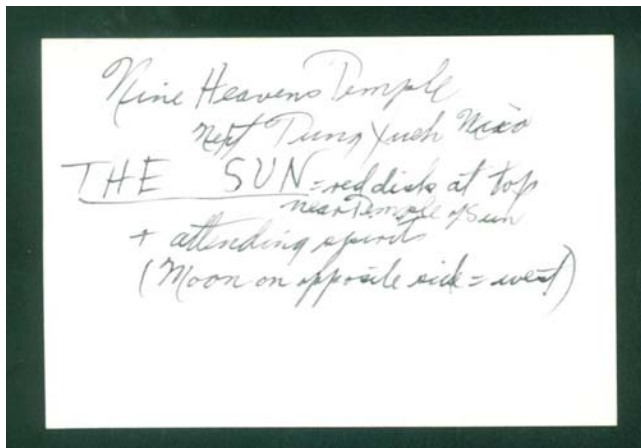 Nine Heavens Temple
next Tung Yueh Miao
THE SUN = red disk at top
near Temple of Sun
+ attending spirits
(Moon on opposite side = west)